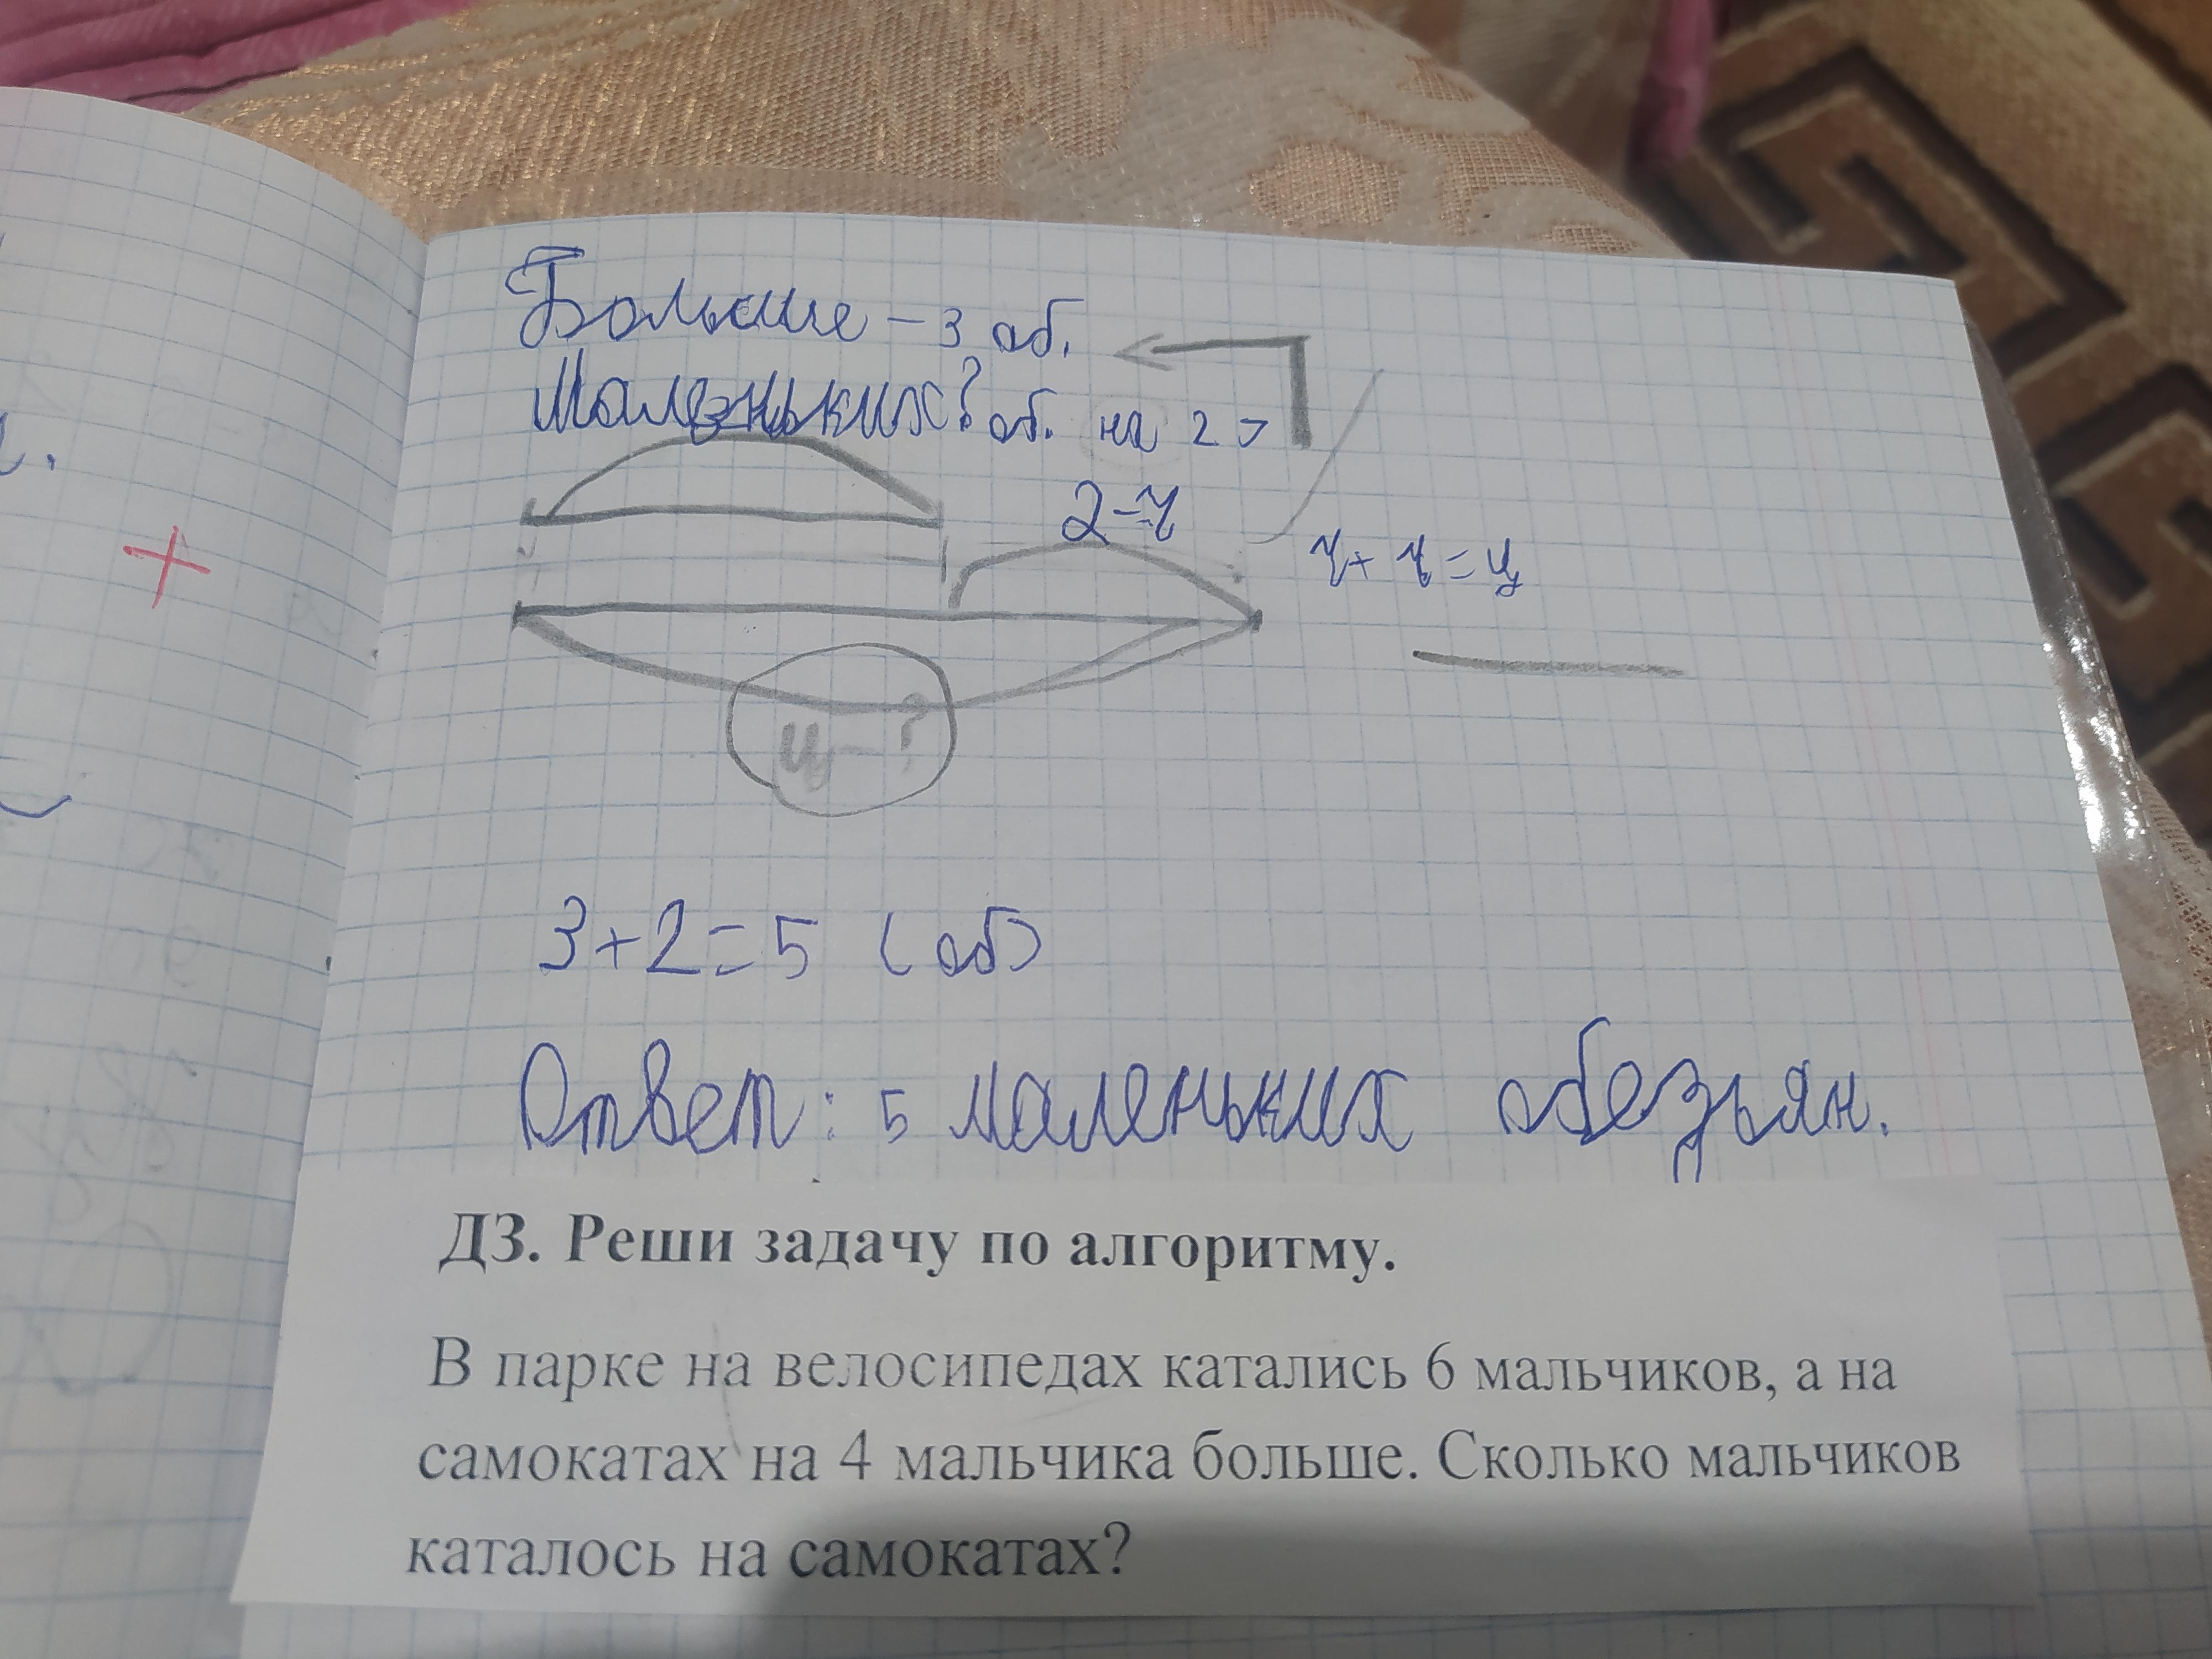 Большие – 3 об.
Маленьких? об. на 2 >
2-ч
ч + ч = ц
ц – ?
3+2=5 (об)
Ответ: 5 маленьких обезьян.
ДЗ. Реши задачу по алгоритму.
В парке на велосипедах катались 6 мальчиков, а на
самокатах на 4 мальчика больше. Сколько мальчиков
каталось на самокатах?